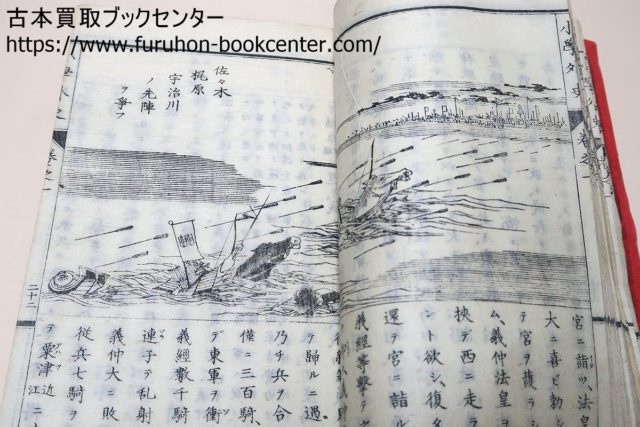 古本買取ブックセンター
https://www.furuhon-bookcenter.com/
小學
宮ニ詣ツ、法皇
大ニ喜ビ勅シ
テ宮ヲ護ラシ
ム、義仲法皇ヲ
挾デ西ニ走ラ
ント欲シ、復タ
還テ宮ニ詣ル
義經撃テ
佐々木
梶原
宇治川
ノ先陣
ヲ爭フ
テ歸ルニ遇
乃チ兵ヲ合
僅ニ三百騎、
デ東軍ヲ衝
義經數千騎
連子テ乱射
義仲大ニ敗
從兵七騎ヲ
テ粟津近江ニ
二十一